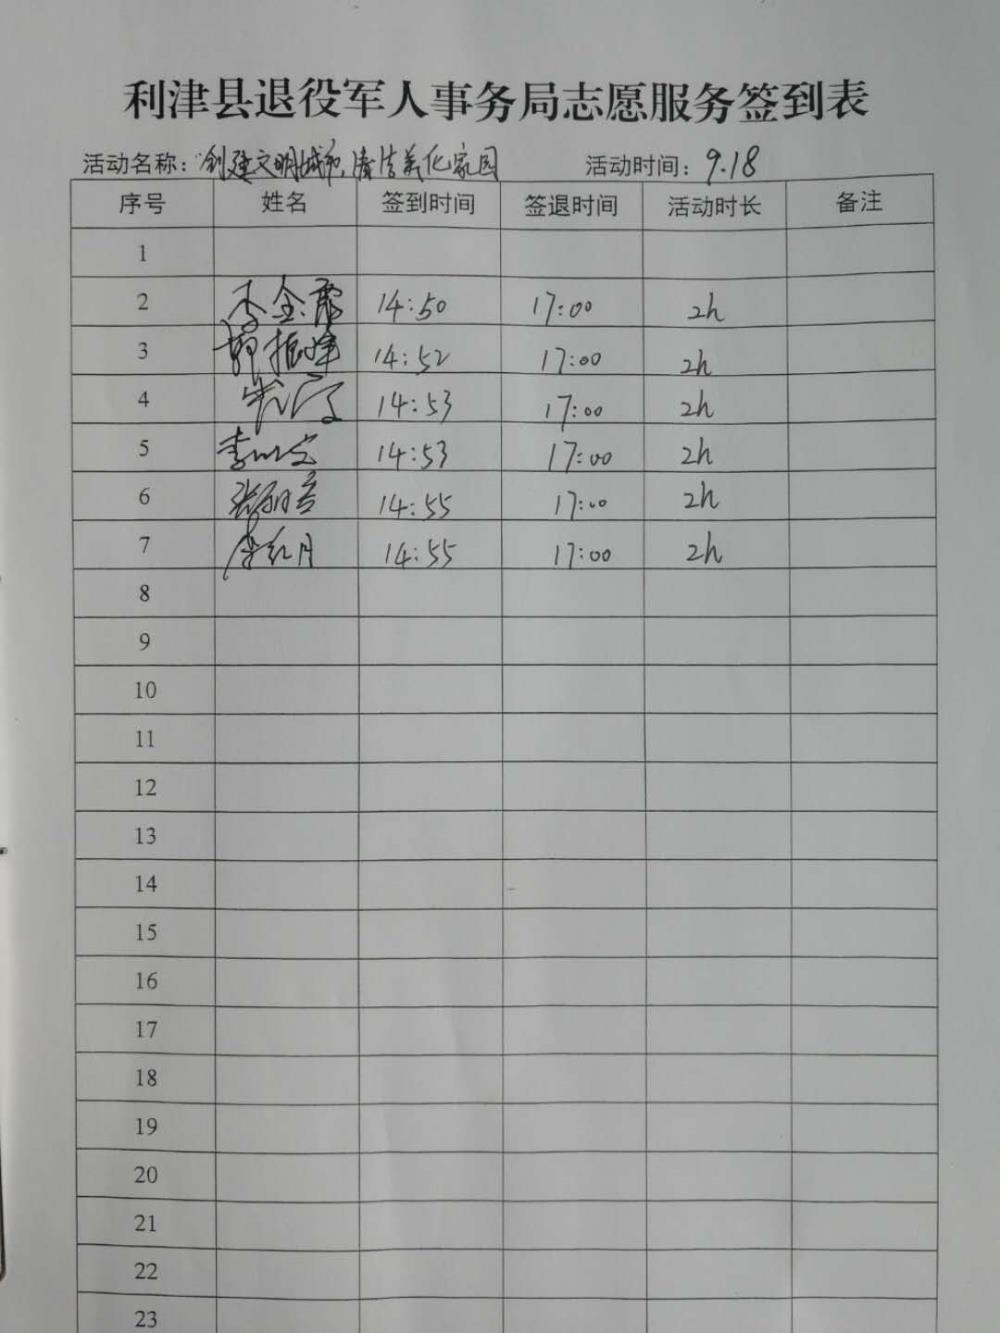 利津县退役军人事务局志愿服务签到表
活动名称：创建文明城市，清洁美化家园 活动时间：9.18
序号 姓名 签到时间 签退时间 活动时长 备注
1
2 李金霏 14:50 17:00 2h
3 郭振峰 14:52 17:00 2h
4 14:53 17:00 2h
5 14:53 17:00 2h
6 14:55 17:00 2h
7 李红月 14:55 17:00 2h
8
9
10
11
12
13
14
15
16
17
18
19
20
21
22
23